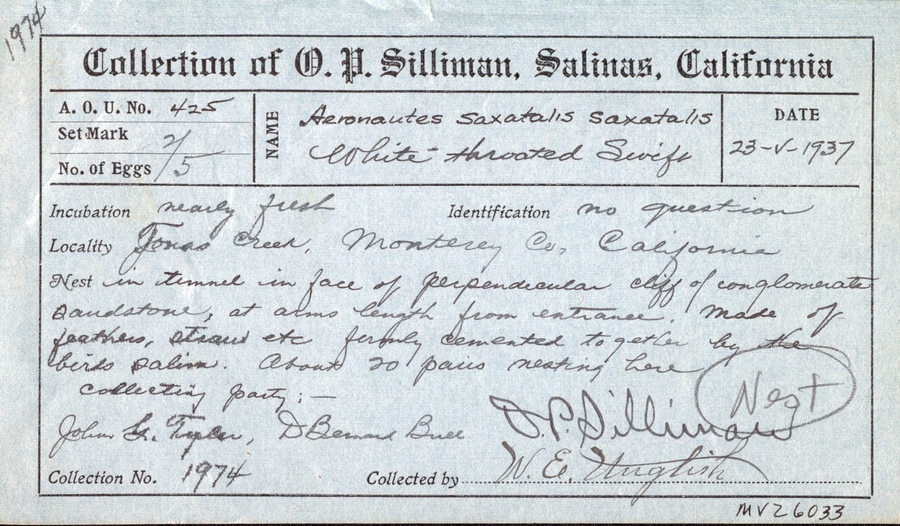 1974
Collection of O. P. Silliman, Salinas, California
A. O. U. No. 425
Set Mark
No. of Eggs 2/5
NAME
Aeronautes saxatalis saxatalis
White-throated Swift
DATE
23-V-1937
Incubation nearly fresh Identification no question
Locality Creek, Monterey Co, California
Nest in tunnel in face of perpendicular cliff of conglomerate
sandstone, at arms length from entrance. Made of
feathers, straw etc firmly cemented together by the
birds saliva. About 20 pairs nesting here
collecting party:—
John G. Tyler, D Bernard Bull O.P. Silliman
Nest
Collection No. 1974 Collected by W. E. Unglish
MVZ6033